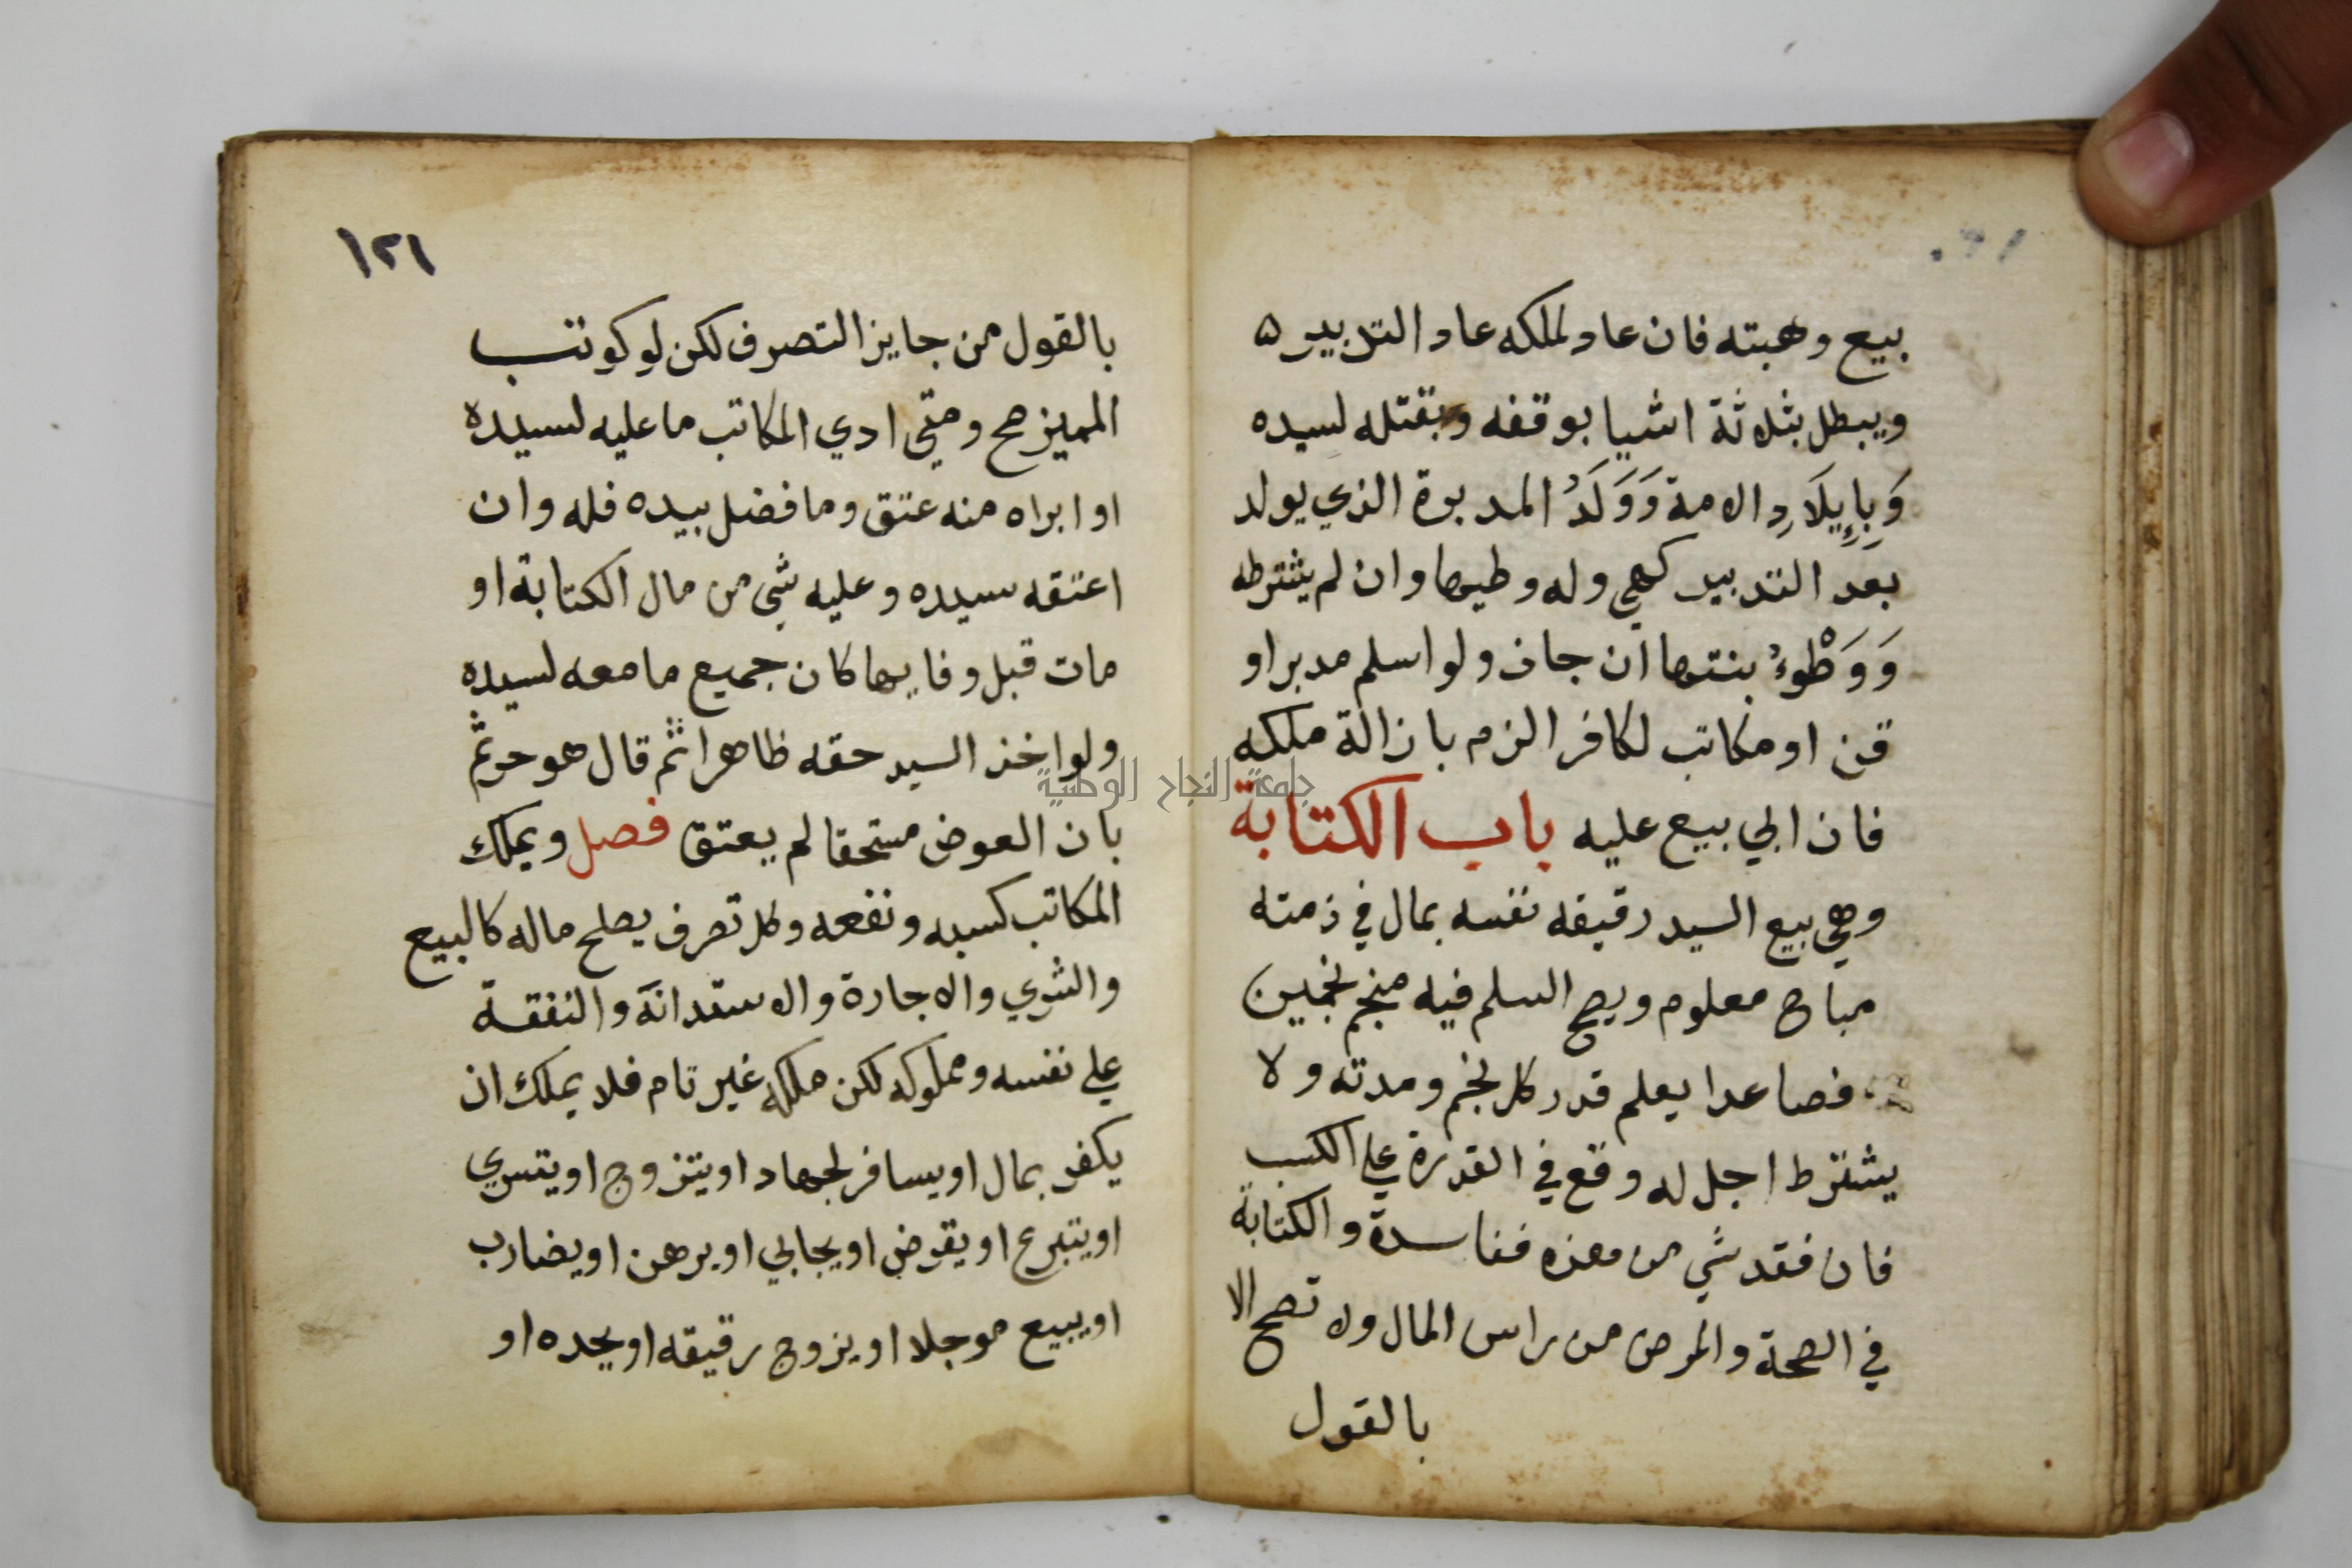 بيع وهبته فان عاد لملكه عاد التدبير ه
ويبطل بثلاثة اشيا بوقفه وبقتله لسيده
وَبِإِيلَادِ الامة وَوَلَدُ المدبرة الذي يولد
بعد التدبير كهي وله وطيها وان لم يشترطه
وَوَطْوءُ بنتها ان جاز ولو اسلم مدبر او
قن او مكاتب لكافر الزم بازالة ملكه
فان ابي بيع عليه باب الكتابة
وهي بيع السيد رقيقه نفسه بمال في ذمته
مباح معلوم ويصح السلم فيه منجم نجمين
فصاعدا يعلم قدر كل نجم ومدته ولا
يشترط اجل له وقع في القدرة علي الكسب
فان فقد شي من هذه ففاسدة والكتابة
في الصحة والمرض من راس المال ولا تصح الا
بالقول
١٢١
بالقول من جايز التصرف لكن لو كوتب
المميز صح ومتي ادي المكاتب ما عليه لسيده
او ابراه منه عتق وما فضل بيده فله وان
اعتقه سيده وعليه شي من مال الكتابة او
مات قبل وفايها كان جميع ما معه لسيده
ولو اخذ السيد حقه ظاهرا ثم قال هو حر ثم
بان العوض مستحقا لم يعتق فصل ويملك
المكاتب كسبه ونفعه وكل تصرف يصلح ماله كالبيع
والشري والاجارة والاستدانة والنفقة
علي نفسه ومملوكه لكن ملكه غير تام فلا يملك ان
يكفر بمال او يسافر لجهاد او يتزوج او يتسري
او يتبرع او يقرض او يحابي او يرهن او يضارب
او يبيع موجلا او يزوج رقيقه او يحده او
جامعة النجاح الوطنية